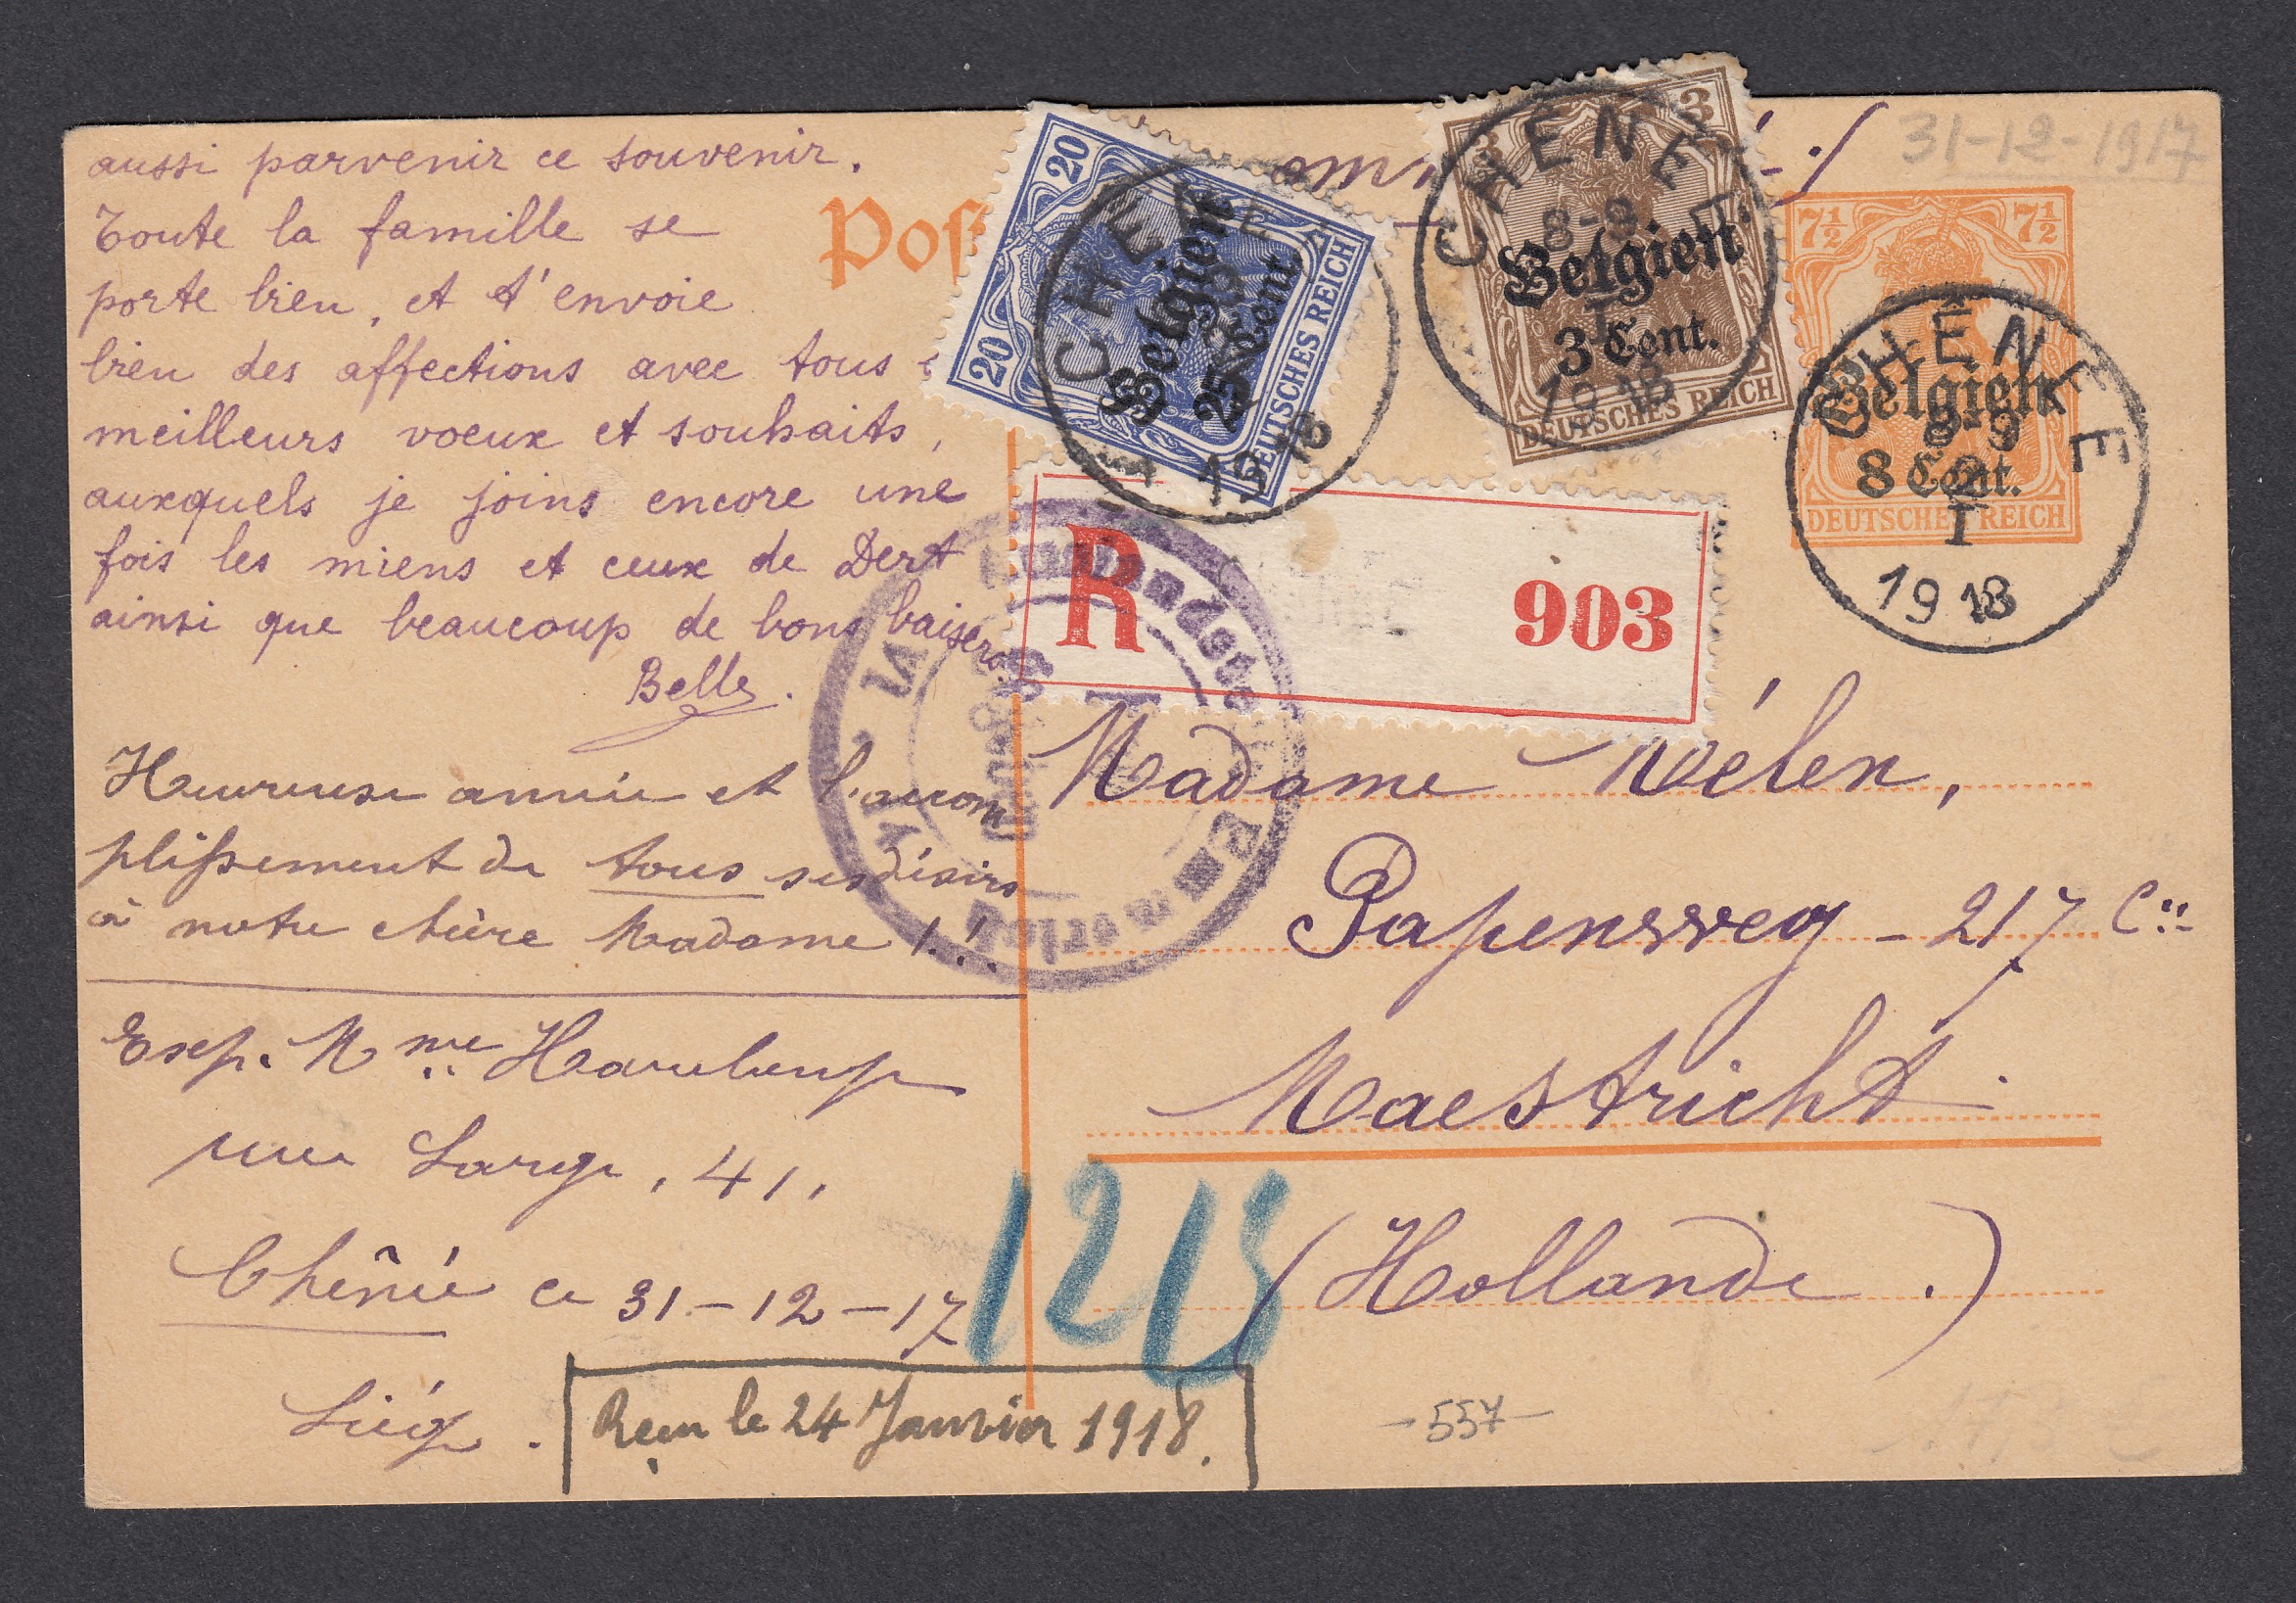 aussi parvenir ce souvenir.
Toute la famille se
porte bien, et t'envoie
bien des affections avec tous
meilleurs voeux et souhaits,
auxquels je joins encore une
fois les miens et ceux de Dert
ainsi que beaucoup de bons baisers.
Belle.
Heureuse année et l'accom
plissement de tous ses désirs
à notre chère Madame !.!
Exp. Mme
rue Large, 41,
Chênée ce 31-12-17
Liége.
Reçu le 24 Janvier 1918.
Post
31-12-1917
20 20
Belgien
25 Cent.
DEUTSCHES REICH
CHENEE
1918
3 3
Belgien
3 Cent.
DEUTSCHES REICH
CHENEE
8-9
I
1918
7½ 7½
Belgien
8 Cent.
DEUTSCHES REICH
CHÊNÉE
8-9
2
I
1918
R 903
Madame Wélen,
Papenweg - 217 C
Maestricht
(Hollande.)
1218
-557-